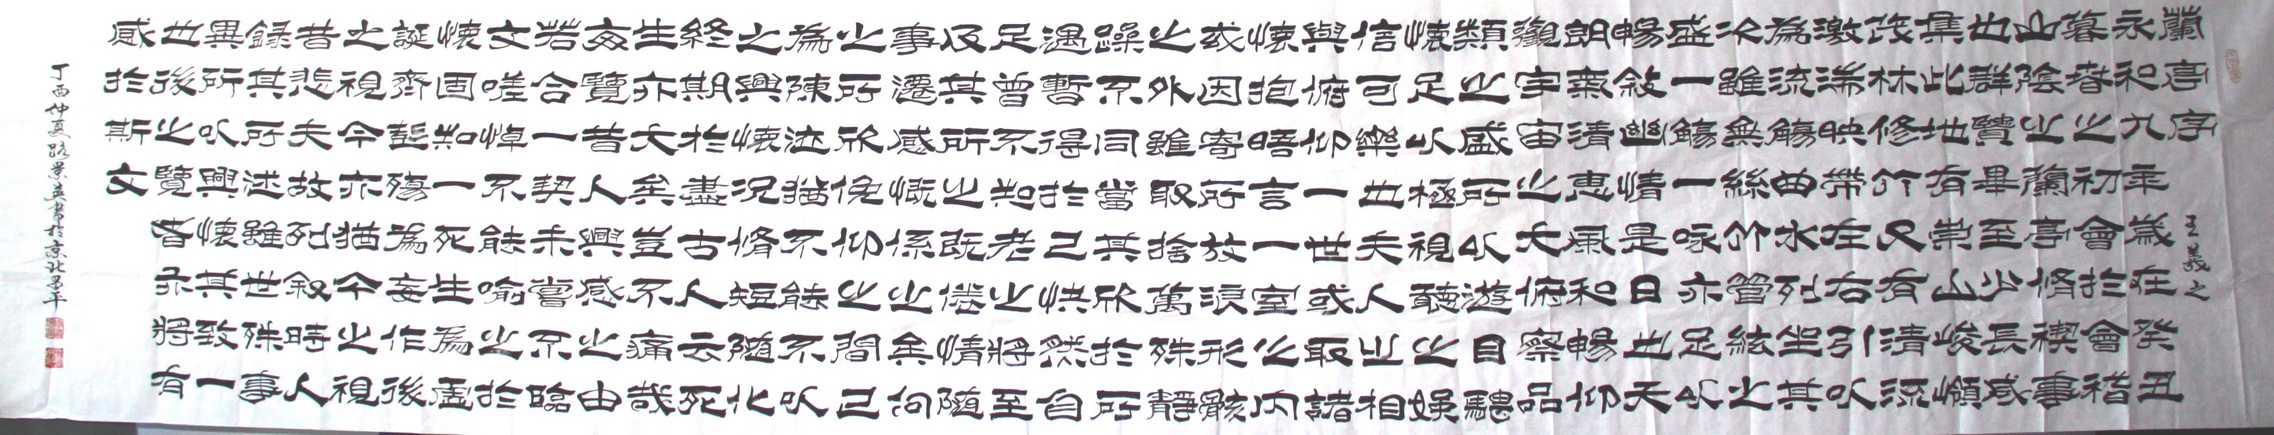 蘭亭序 王羲之
永和九年歲在癸丑
暮春之初會於會稽
山陰之蘭亭脩禊事
也群賢畢至少長咸
集此地有崇山峻嶺
茂林修竹又有清流
激湍映帶左右引以
為流觴曲水列坐其
次雖無絲竹管絃之
盛一觴一詠亦足以
暢敘幽情是日也天
朗氣清惠風和暢仰
觀宇宙之大俯察品
類之盛所以遊目騁
懷足以極視聽之娛
信可樂也夫人之相
與俯仰一世或取諸
懷抱晤言一室之內
或因寄所放浪形骸
之外雖取捨萬殊靜
躁不同當其欣於所
遇暫得於己快然自
足曾不知老之將至
及其所之既倦情隨
事遷感慨係之矣向
之所欣俛仰之間已
為陳迹猶不能不以
之興懷況脩短隨化
終期於盡古人云死
生亦大矣豈不痛哉
每覽昔人興感之由
若合一契未嘗不臨
文嗟悼不能喻之於
懷固知一死生為虛
誕齊彭殤為妄作後
之視今亦猶今之視
昔悲夫故列叙時人
錄其所述雖世殊事
異所以興懷其致一
也後之覽者亦將有
感於斯文
丁酉仲夏路景英書於京北昌平